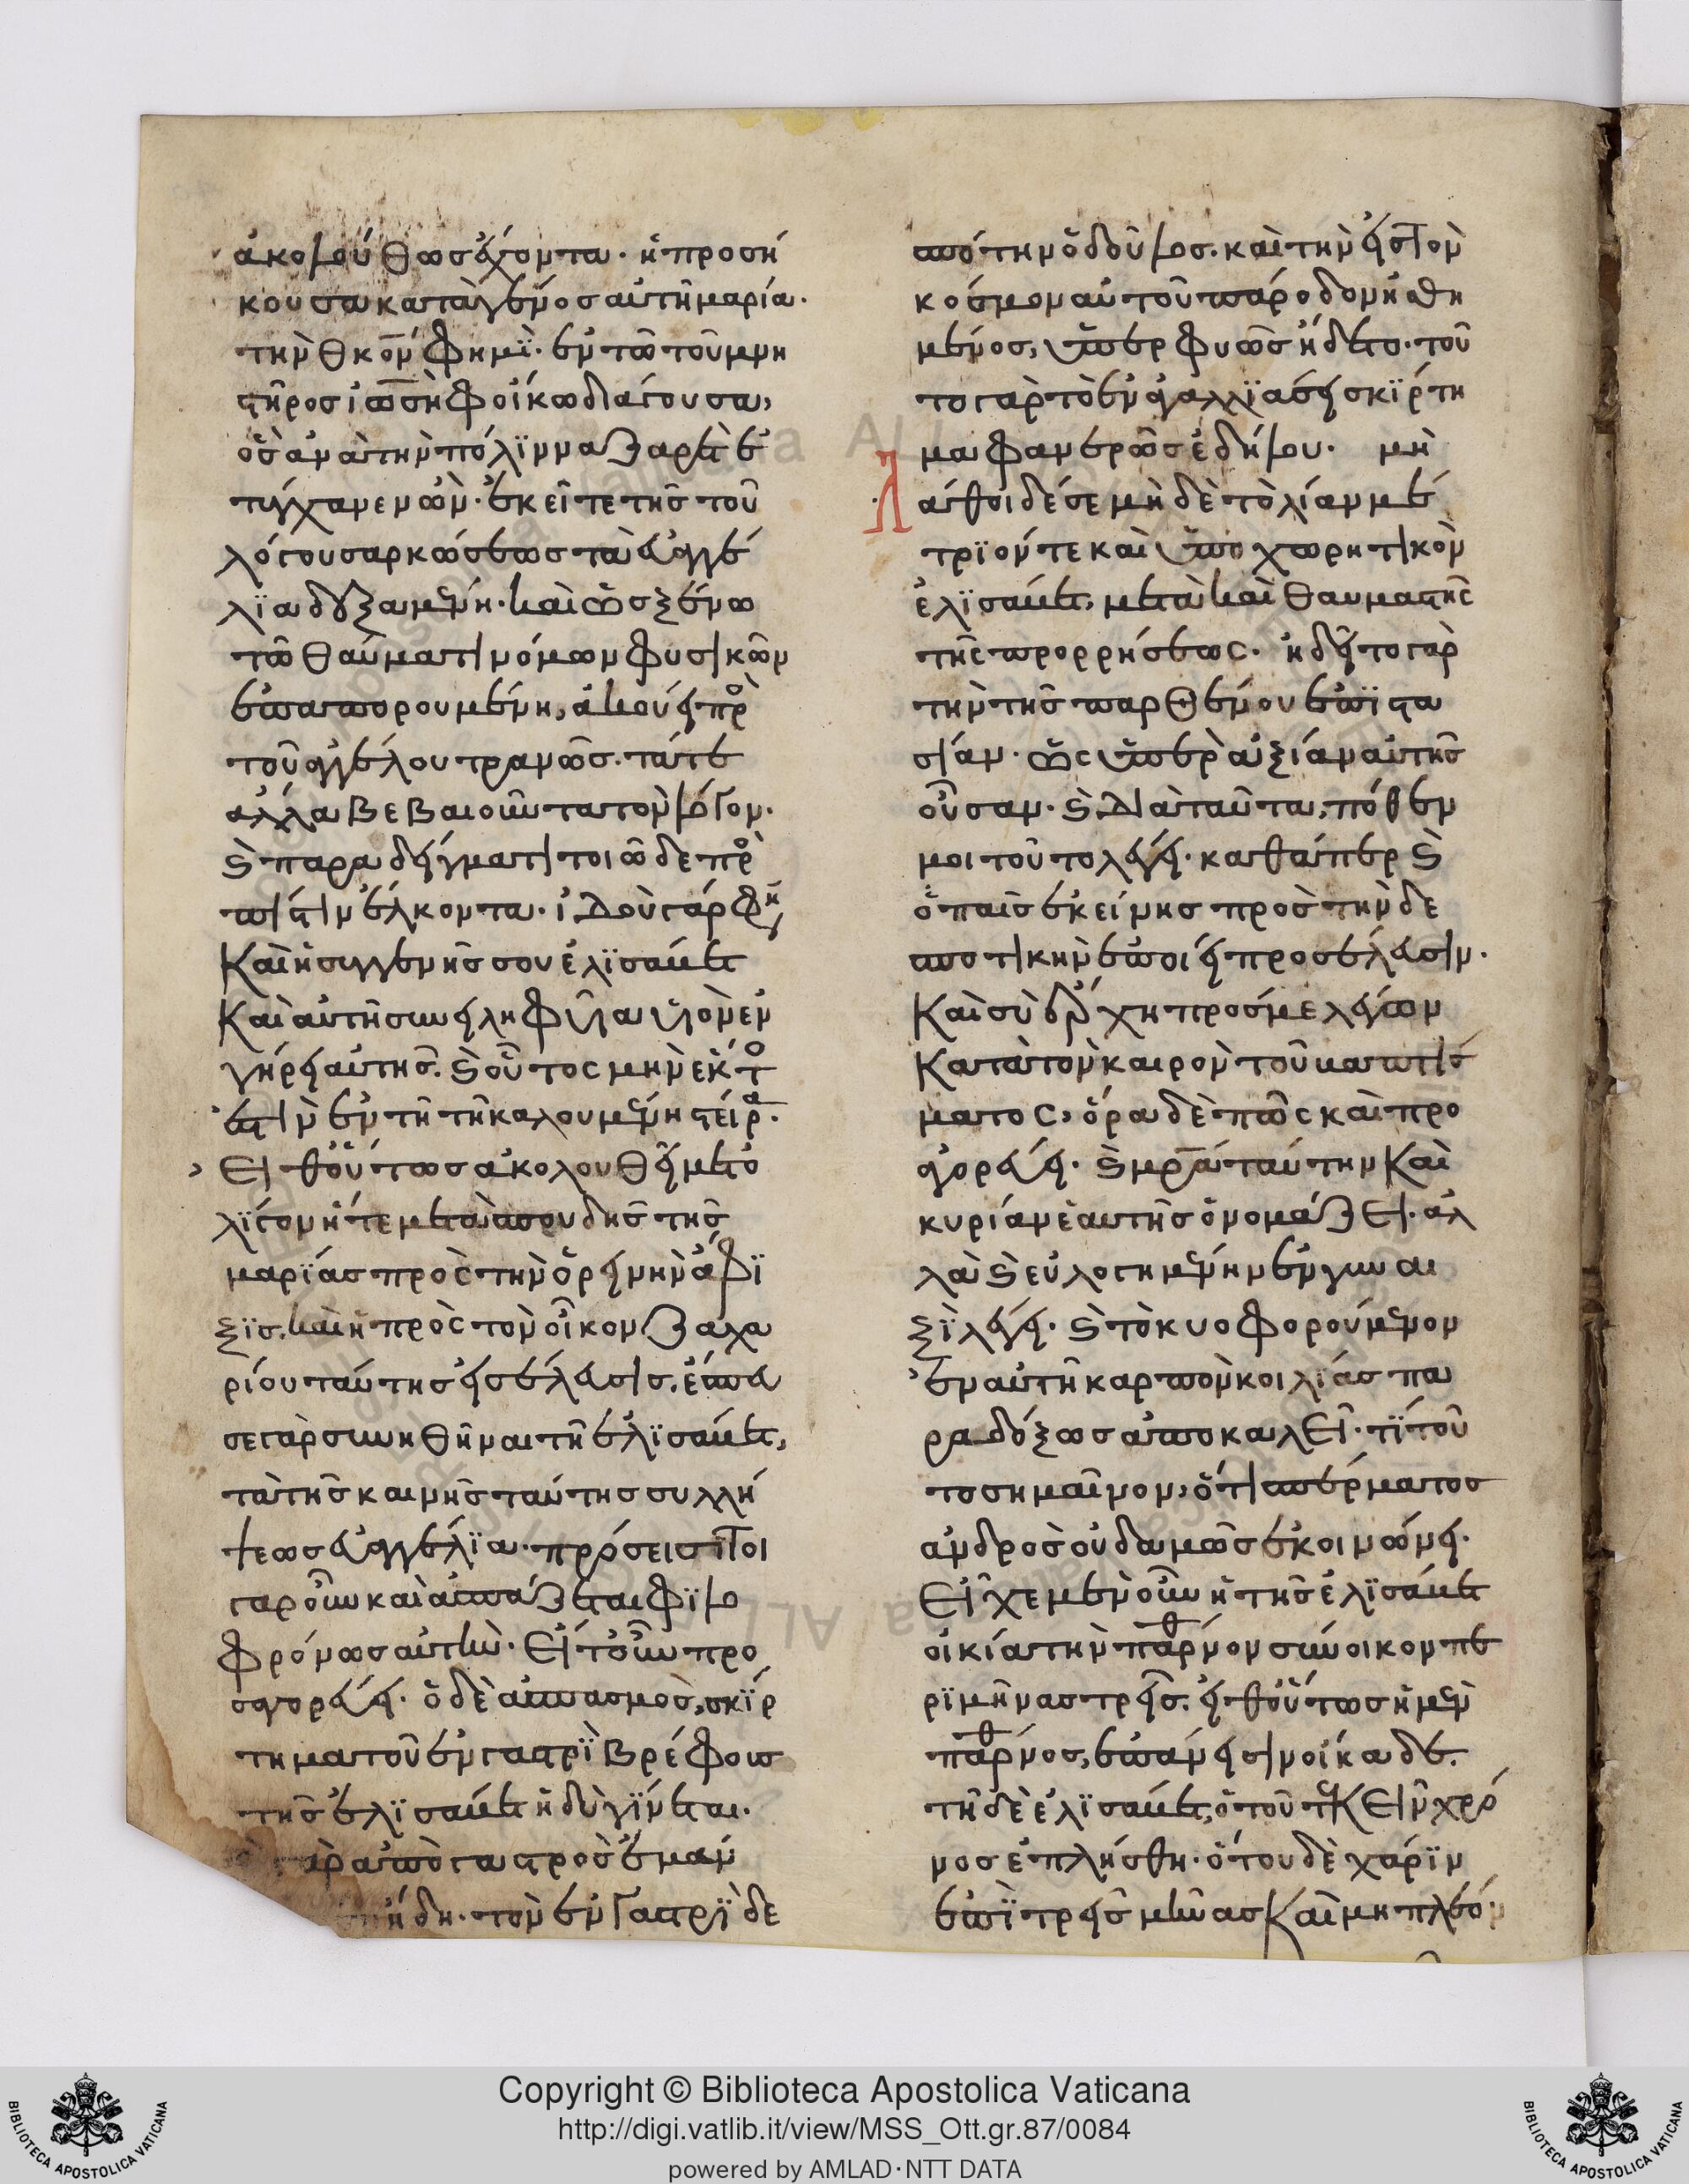 ἀκολούθως ἔχοντα. ἡ προσή
κουσα κατὰ γένος αὐτῇ μαρία.
τὴν θκόν φημΐ. ἐν τῶ τοῦ μνη
στῆρος ἰωσὴφ οἴκω διάγουσα,
ὃς ἀνὰ τὴν πόλϊν ναζαρὲτ ἐ
τύγχανεν ὤν. ἐκεῖ τε τῆς τοῦ
λόγου σαρκώσεως τὰ εὐαγγέ
λϊα δεξαμένη. καὶ ὡς ξένω
τῶ θαύματι νόμων φυσικῶν
ἐπαπορουμένη, ἀκούει πρὸ
τοῦ ἀγγέλου τρανῶς. τά τε
ἄλλα βεβαιοῦντα τὸν λόγον.
καὶ παραδείγματι τοιῶδε πρὸ
πίστιν ἕλκοντα. ἰδοὺ γάρ φη
καὶ ἡ συγγενής σου ἐλϊσάβετ
καὶ αὐτὴ συνειληφυῖα υἱὸν ἐν
γήρει αὐτῆς. καὶ οὗτος μὴν ἕκτο
ἐστὶν ἐν τῆ τῆ καλουμένη στείρα.
εἶθ' οὕτως ἀκολουθεῖ μετ' ὀ
λΐγον ἥ τε μετὰ σπουδῆς τῆς
μαρϊὰς πρὸς τὴν ὀρεινὴν ἄφϊ
ξϊς. καὶ ἡ πρὸς τὸν οἶκον ζαχα
ρίου ταύτης εἰσέλευσις. ἔσπευ
σε γὰρ συνηθῆναι τῆ ἐλϊσάβετ,
τὰ τῆς καινῆς ταύτης συλλή
ψεως εὐαγγέλϊα. πρόσεισί τοι
γαροῦν καὶ ἀσπάζεται φϊλο
φρόνως αὐτήν. εἶτ' οὖν προ
σαγορεύει. ὁ δὲ ἀσπασμὸς, σκϊρ
τημα τοῦ ἐν γαστρΐ βρέφους
τῆς ἐλϊσάβετ ἤδη γΐνεται.
γὰρ ἀπὸ γαστρὸς ἐμάν
ήδη. τὸν ἐν γαστρϊ δε
σπότην ὁ δοῦλος. καὶ τὴν εἰς τὸν
κόσμον αὐτοῦ πάροδον ᾐσθη
μένος, ὑπερφυῶς ἥδετο. τοῦ
το γὰρ τὸ ἐν ἀγαλλϊάσει σκΐρτη
μα φανερῶς ἐδήλου. μὴ
λάθοι δέ σε μὴ δὲ τὸ λίαν μέ
τρϊόν τε καὶ ὑποχωρητικὸν
ἐλϊσάβετ, μετὰ καὶ θαυμαστῆς
τῆς προρρήσεως. ᾐδεῖτο γὰρ
τὴν τῆς παρθένου ἐπϊστα
σίαν. ὡς ὑπὲρ ἀξίαν αὐτῆς
οὖσαν. καὶ διὰ ταῦτα, πόθεν
μοι τοῦτο λέγει. καθάπερ καὶ
ὁ παῖς ἐκείνης πρὸς τὴν δε
σποτικὴν ἐποίει προσέλευσιν.
καὶ σὺ ἔρχη πρός με λέγων
κατὰ τὸν καιρὸν τοῦ βαπτίσ
ματος, ὅρα δὲ πῶς καὶ προ
αγορεύει. καὶ μρα ταύτην καὶ
κυρίαν ἑαυτῆς ὀνομάζει. ἀλ
λὰ καὶ εὐλογημένην ἐν γυναι
ξὶ λέγει. καὶ τὸ κυοφορούμενον
ἐν αὐτῆ καρπὸν κοιλίας πα
ραδόξως ἀποκαλεῖ. τΐ τοῦ
το σημαῖνον, ὅτι σπέρματος
ἀνδρὸς οὐδαμῶς ἐκοινώνει.
εἶχε μὲν οὖν ἡ τῆς ἐλϊσάβετ
οἰκία τὴν παρθνον σύνοικον πε
ρϊ μῆνας τρεῖς. εἶθ' οὕτως ἡ μὲν
παρθνος, ἐπάνεισιν οἴκαδε.
τῆ δὲ ἐλϊσάβετ, ὁ τοῦ τεκεῖν χρό
νος ἐπλήσθη. ὅτου δὲ χάρϊν
ἐπϊ τρεῖς μῆνας καὶ μὴ πλέον
Copyright © Biblioteca Apostolica Vaticana
http://digi.vatlib.it/view/MSS_Ott.gr.87/0084
powered by AMLAD·NTT DATA
BIBLIOTECA APOSTOLICA VATICANA
BIBLIOTECA APOSTOLICA VATICANA